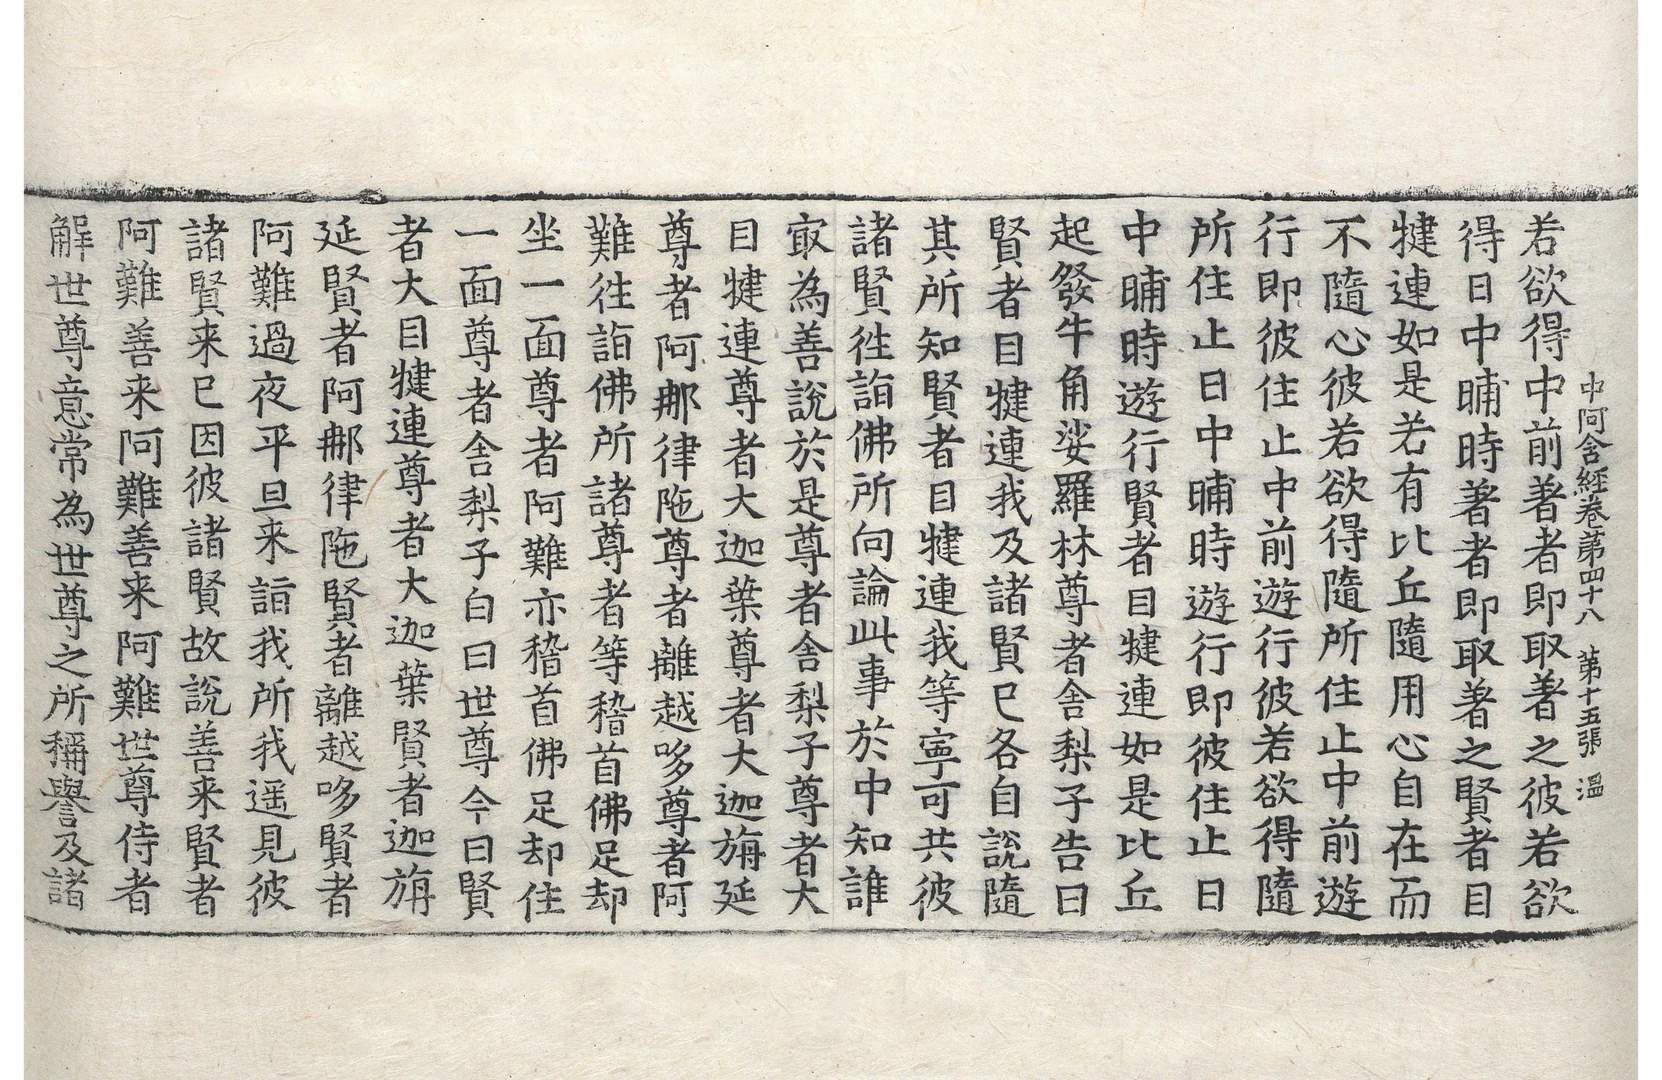 中阿含經卷第四十八　第十五張　溫
若欲得中前著者即取著之彼若欲
得日中晡時著者即取著之賢者目
揵連如是若有比丘隨用心自在而
不隨心彼若欲得隨所住止中前遊
行即彼住止中前遊行彼若欲得隨
所住止日中晡時遊行即彼住止日
中晡時遊行賢者目揵連如是比丘
起發牛角娑羅林尊者舍梨子告曰
賢者目揵連我及諸賢已各自說隨
其所知賢者目揵連我等寧可共彼
諸賢往詣佛所向論此事於中知誰
㝡為善說於是尊者舍梨子尊者大
目揵連尊者大迦葉尊者大迦旃延
尊者阿那律陁尊者離越哆尊者阿
難往詣佛所諸尊者等稽首佛足却
坐一面尊者阿難亦稽首佛足却住
一面尊者舍梨子白曰世尊今日賢
者大目揵連尊者大迦葉賢者迦旃
延賢者阿那律陁賢者離越哆賢者
阿難過夜平旦来詣我所我遥見彼
諸賢来已因彼諸賢故說善来賢者
阿難善来阿難善来阿難世尊侍者
解世尊意常為世尊之所稱譽及諸